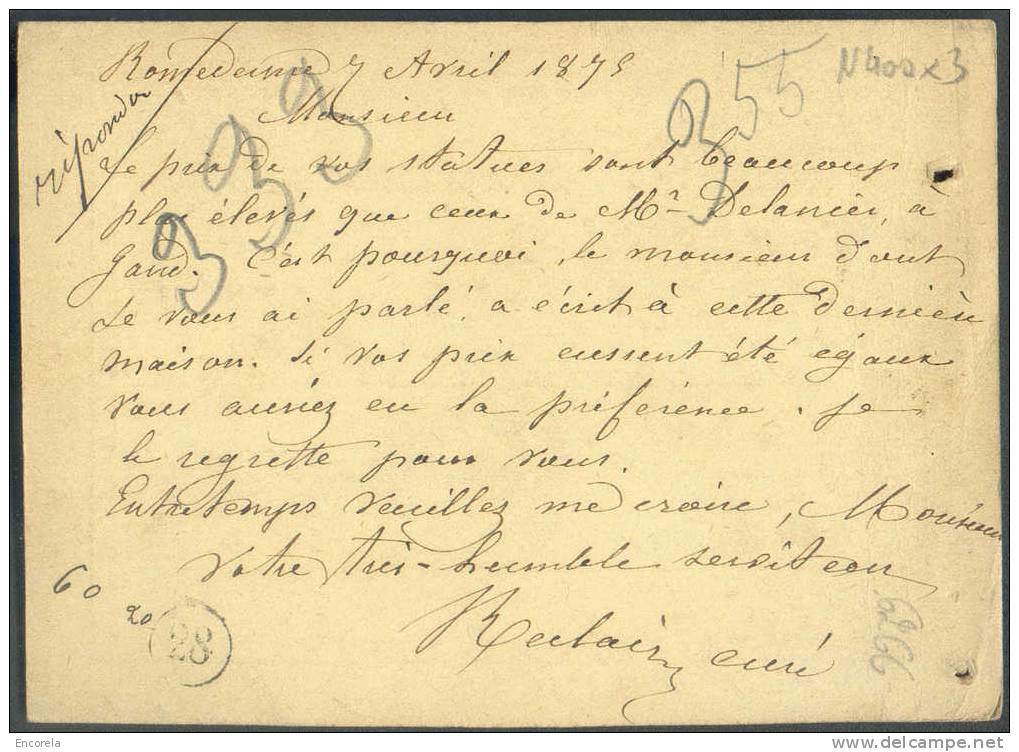 Romedenne 7 Avril 1875
N 400 x 3
355
333
répondu
Monsieur
Le prix de vos statues sont beaucoup
plus élevés que ceux de Mr Delanier, à
Gand. C'est pourquoi, le monsieur d'ont
Je vous ai parlé, a écrit à cette dernière
maison. Si vos prix eussent été égaux
vous auriez eu la préférence. Je
le regrette pour vous.
Entretemps veuillez me croire, Monsieur
votre très-humble serviteur
curé
60
20
28
6266
Encorela
http://www.delcampe.net